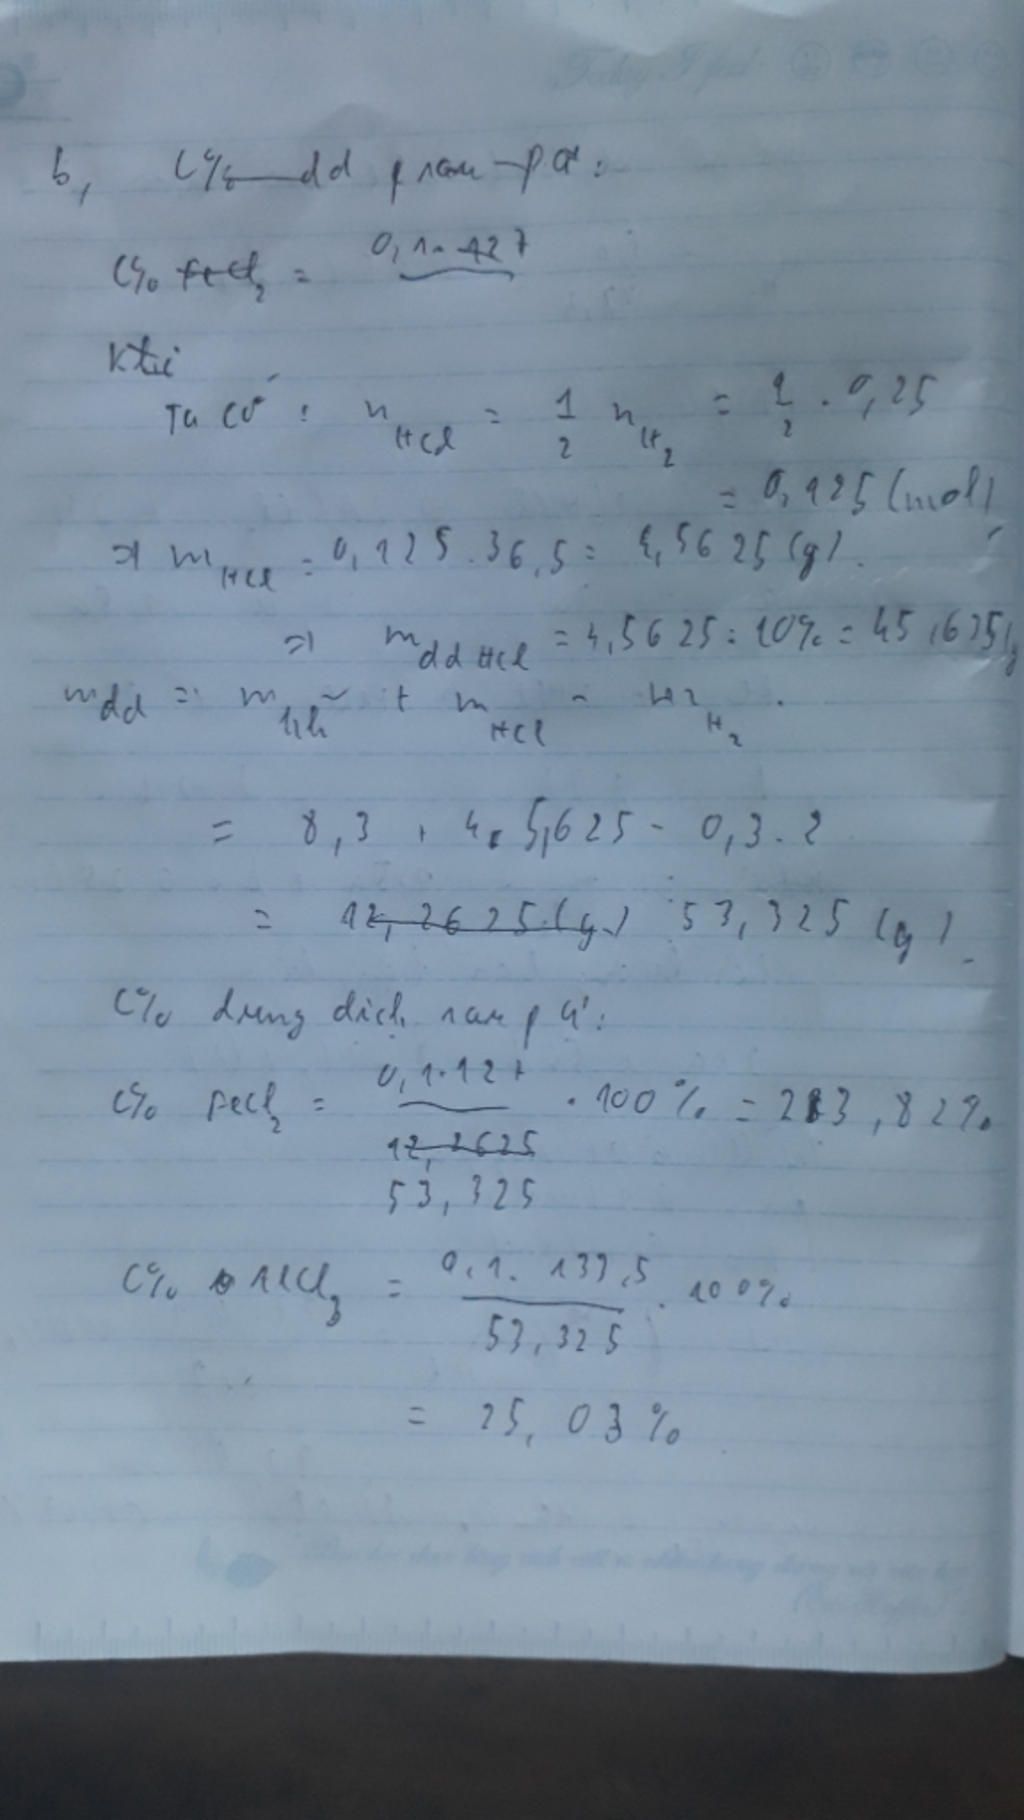 Today I feel
b, C% dd sau pứ :
C% FeCl2 = 0,1.127
Khi
Ta có : nHCl = 1/2 nH2 = 1/2 . 0,25
= 0,125 (mol)
=> mHCl = 0,125 . 36,5 = 4,5625 (g).
=> mdd HCl = 4,5625 : 10% = 45,625 g
mdd = mhh + mHCl - mH2 .
= 8,3 + 45,625 - 0,3.2
= 12,2625 (g) 53,325 (g).
C% dung dịch sau pứ :
C% FeCl2 = 0,1.127 / 12,2625 53,325 . 100% = 23,82%
C% AlCl3 = 0,1. 133,5 / 53,325 . 100%
= 25,03%